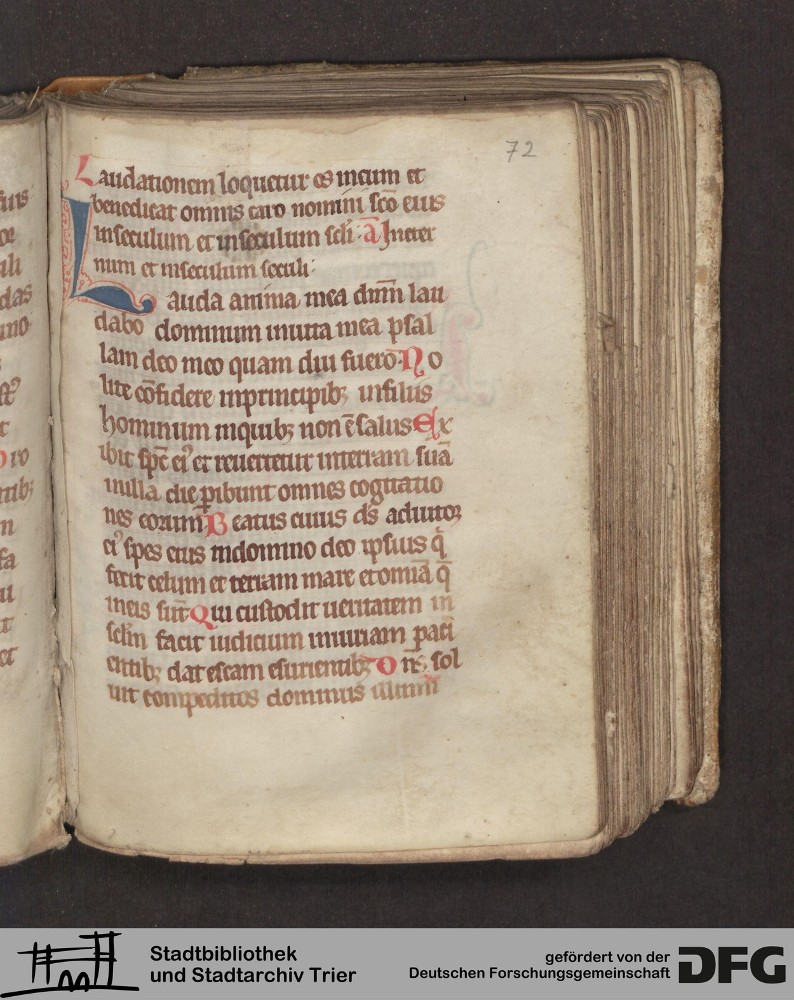 72
Laudationem loquetur os meum et
benedicat omnis caro nomini sc̄o eius
inseculum et inseculum scl̄i· a̅ Ineter
num et inseculum seculi·
Lauda anima mea dn̄m lau
dabo dominum inuita mea psal
lam deo meo quam diu fuero· No
lite cōfidere inprincipib; infilius
hominum inquib; non ē salus Ex
ibit spc̄ ei' et reuertetur interram suā
inilla die p̱ibunt omnes cogitatio
nes eorum Beatus cuius ds̄ adiutor
ei' spes eius indomino deo ipsius q̄
fecit celum et terram mare et om̄ia q̄
ineis sūt Qui custodit ueritatem in
scl̄m facit iudicium iniuriam pati
entib; dat escam esurientib; Dn̄s. sol
uit compeditos dominus illumi
Stadtbibliothek
und Stadtarchiv Trier
gefördert von der
Deutschen Forschungsgemeinschaft
DFG